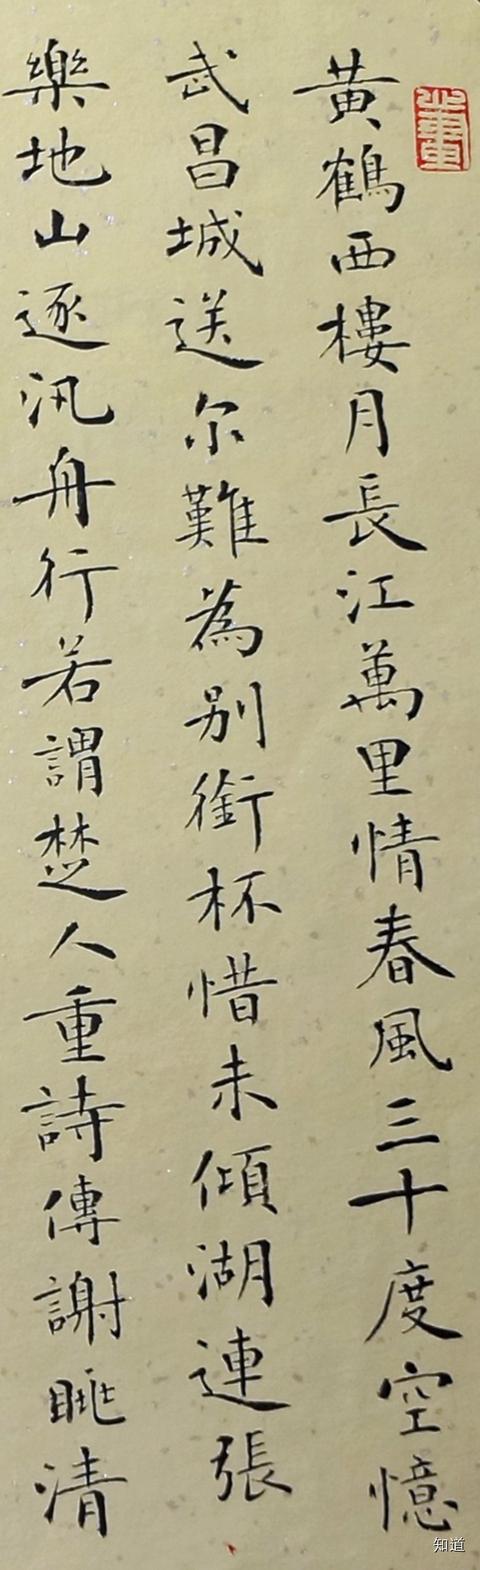 黃鶴西樓月長江萬里情春風三十度空憶
武昌城送尔難為別銜杯惜未傾湖連張
樂地山逐汎舟行若謂楚人重詩傳謝眺清
知道